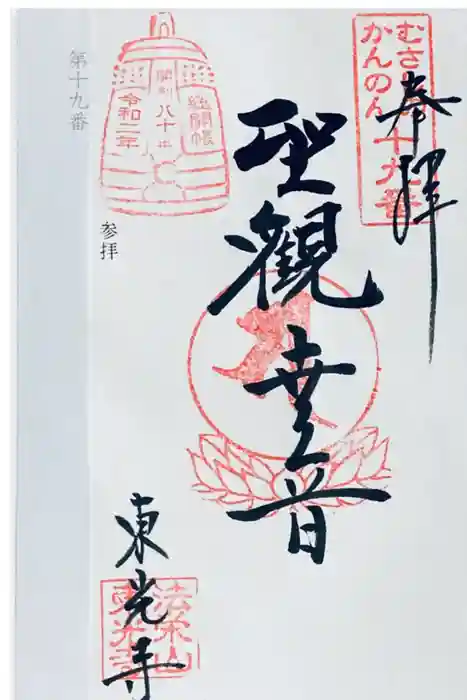 むさしの
かんのん
十九番
奉拝
聖観世音
開創八十年
総開帳
令和二年
第十九番
参拝
東光寺
法栄山
東光寺